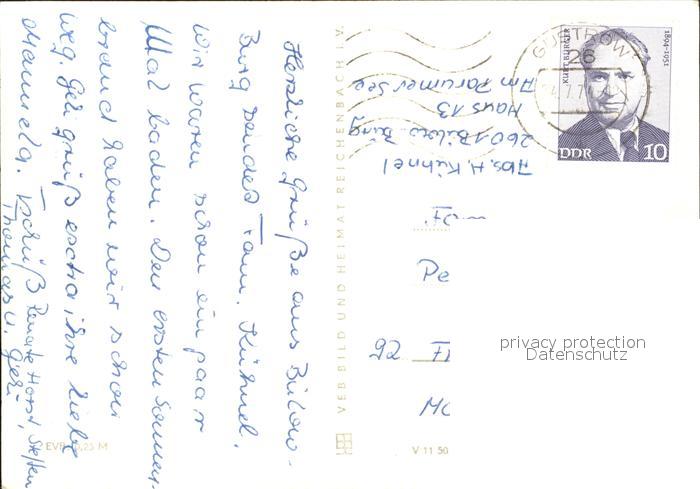 Herzliche Grüße aus Bülow-
Burg sendet Fam. Kühnel.
Wir waren schon ein paar
Mal baden. Den ersten Sonnen-
brand haben wir schon
weg. Geli grüß extra, ihre liebe
Manuela. Tschüß Renate Horst, Steffen
Thomas u. Geli
EVP 0,25 M
VEB BILD UND HEIMAT REICHENBACH I. V.
V 11 50
Abs. H. Kühnel
2601 Bülow-Burg
Haus 13
Am Parumer See
GÜSTROW
26
KURT BÜRGER
1894-1951
DDR
10
Pe
92 Fl
privacy protection
Datenschutz